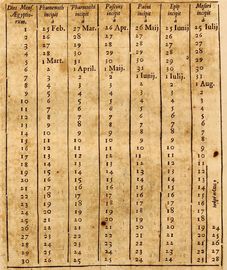 Dies Mens. Phamenoth Pharmuthi Pachon Paini Epip Mesori
Ægyptio- incipit incipit incipit incipit incipit incipit
rum. à à à à à à
1 25 Feb. 27 Mar. 26 Apr. 26 Maij 25 Iunij 25 Iulij
2 26 28 27 27 26 26
3 27 29 28 28 27 27
4 28 30 29 29 28 28
5 1 Mart. 31 30 30 29 29
6 2 1 April. 1 Maij. 31 30 30
7 3 2 2 1 Iunij. 1 Iulij. 31
8 4 3 3 2 2 1 Aug.
9 5 4 4 3 3 2
10 6 5 5 4 4 3
11 7 6 6 5 5 4
12 8 7 7 6 6 5
13 9 8 8 7 7 6
14 10 9 9 8 8 7
15 11 10 10 9 9 8
16 12 11 11 10 10 9
17 13 12 12 11 11 10
18 14 13 13 12 12 11
19 15 14 14 13 13 12
20 16 15 15 14 14 13
21 17 16 16 15 15 14
22 18 17 17 16 16 15
23 19 18 18 17 17 16
24 20 19 19 18 18 17
25 21 20 20 19 19 18
26 22 21 21 20 20 19 24
27 23 22 22 21 21 20 25
28 24 23 23 22 22 21 26
29 25 24 24 23 23 22 27
30 26 25 25 24 24 23 28